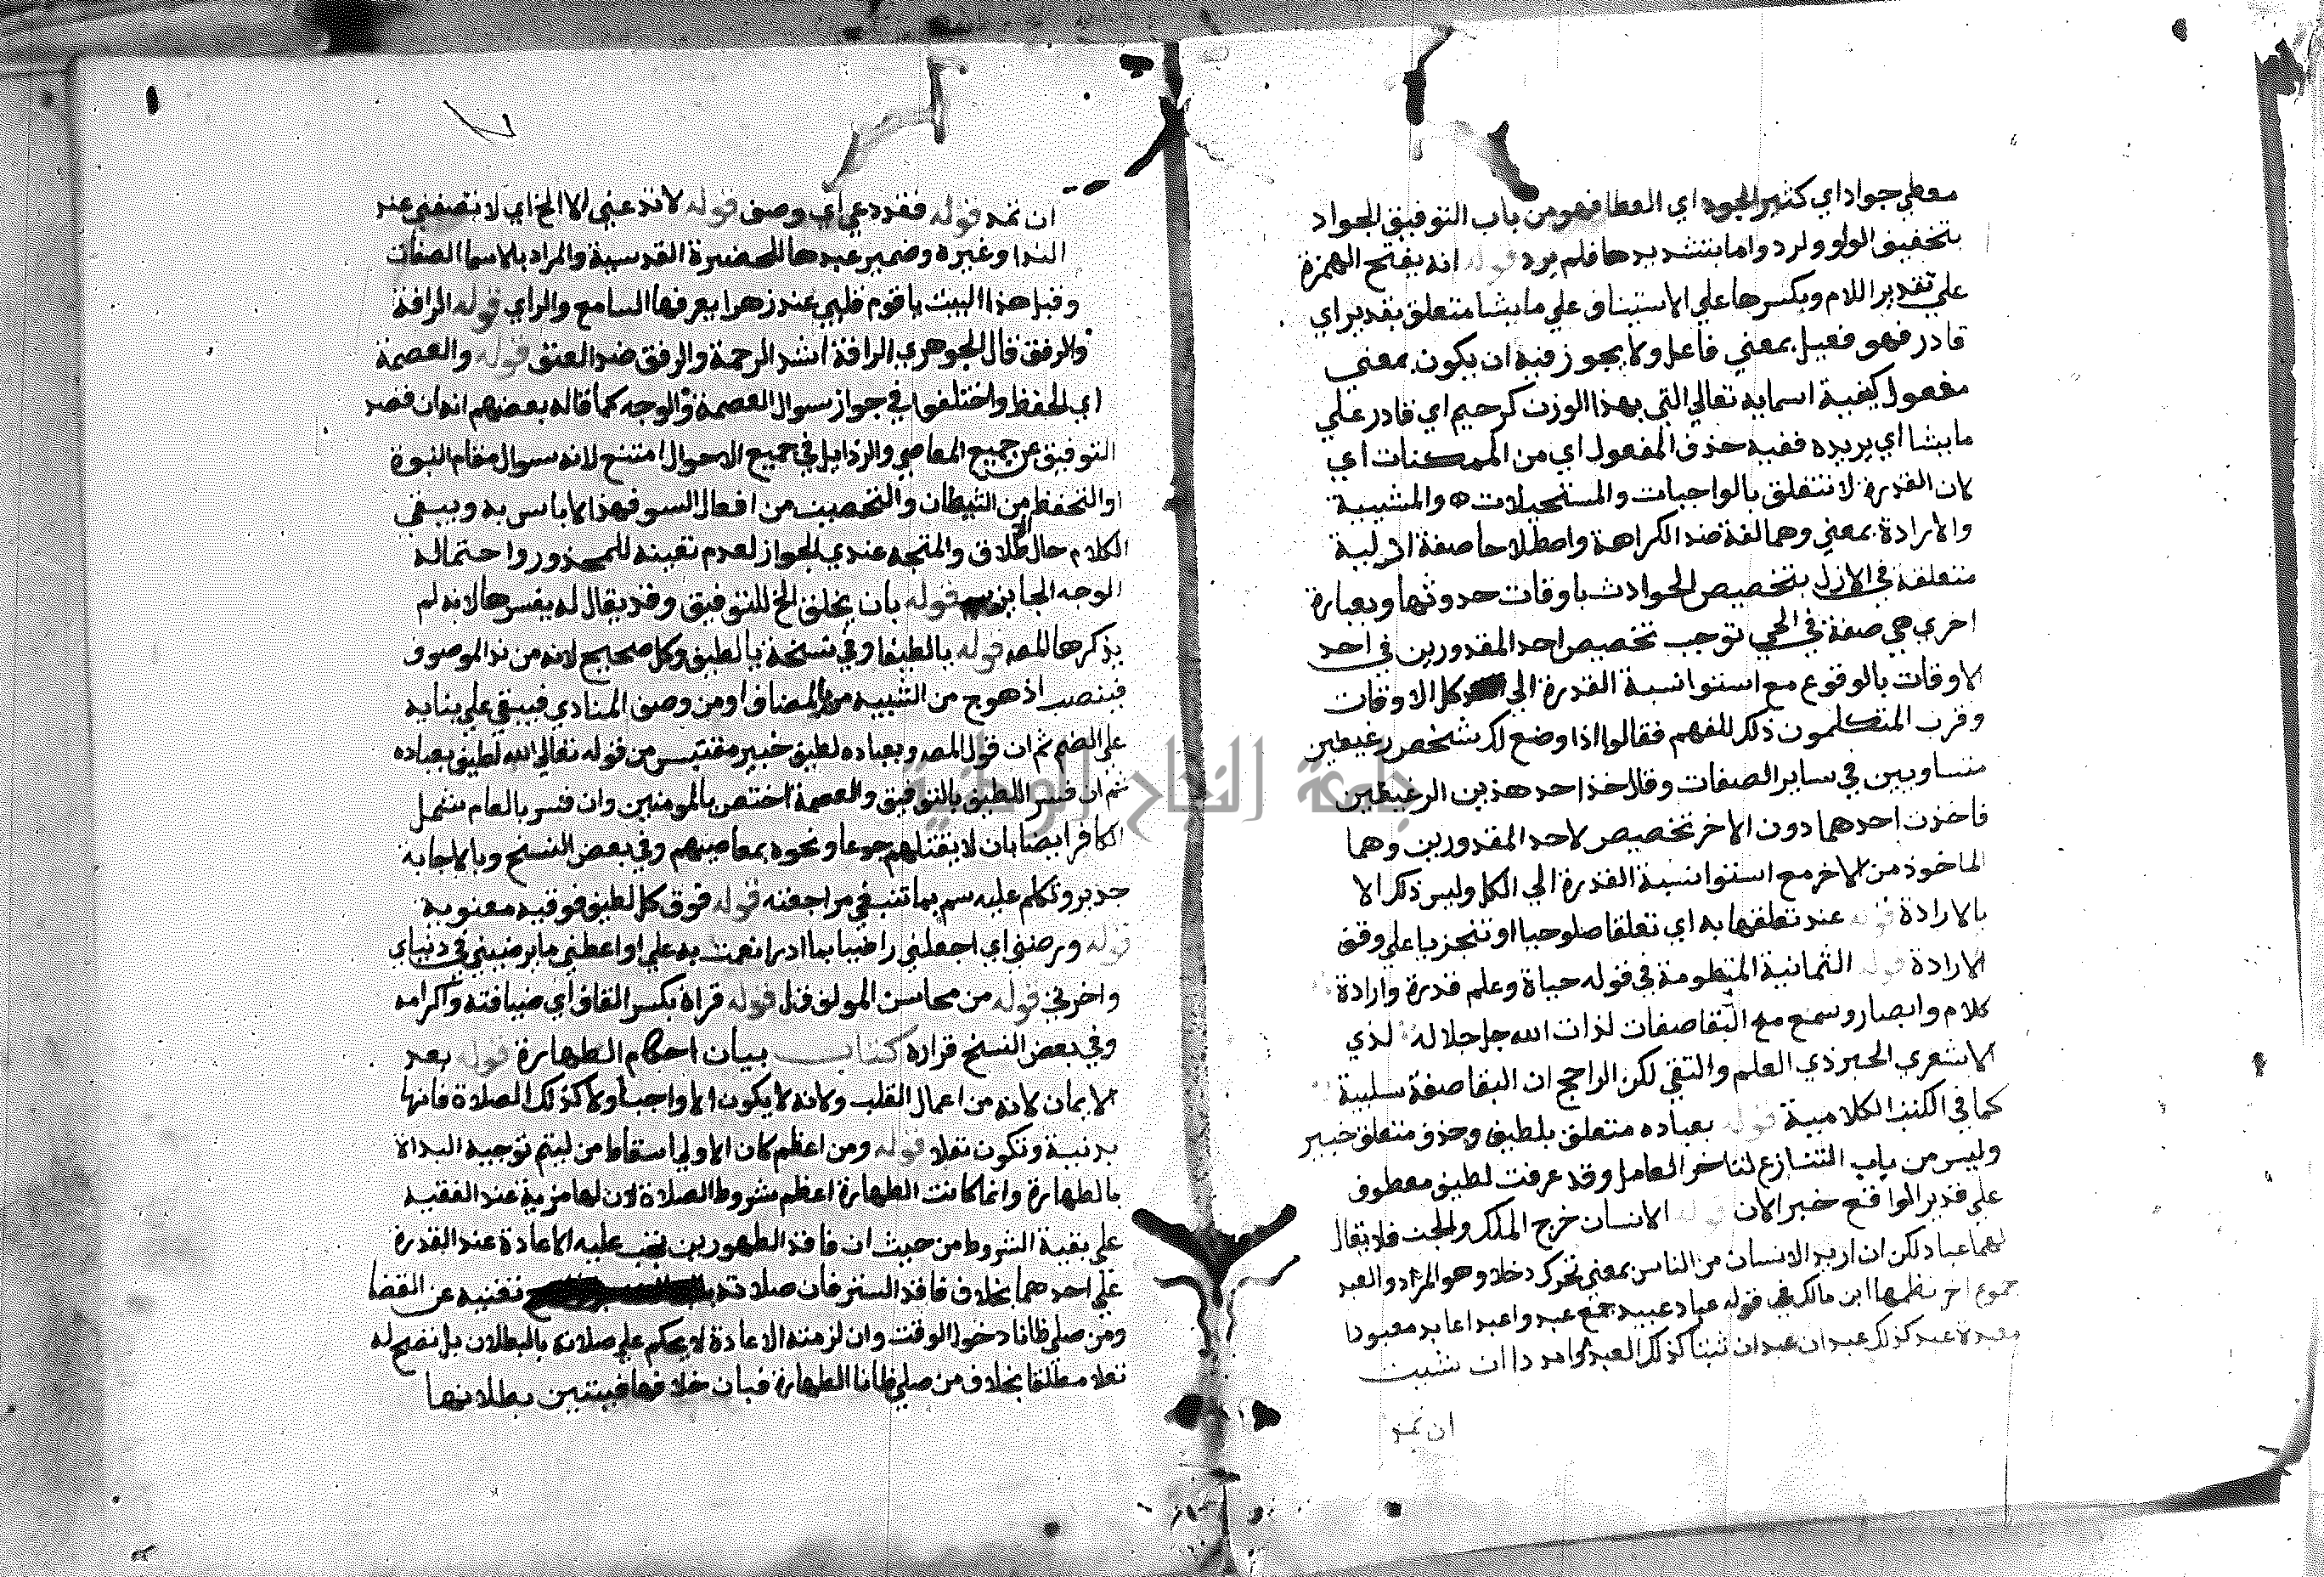 معطي جواد اي كثير الجود اي العطا فهو من باب التوفيق الجواد
بتخفيف الواو ولرد واما بتشديدها فلم يرد قوله انه بفتح الهمزة
علي تقدير اللام وبكسرها علي الاستيناف علي ما يشا متعلق بقدير اي
قادر فهو فعيل بمعني فاعل ولا يجوز فيه ان يكون بمعني
مفعول كبقية اسمايه تعالي التي بهذا الوزن كرحيم اي قادر علي
ما يشا اي يريده ففيه حذف المفعول اي من الممكنات اي
لان القدرة لا تتعلق بالواجبات والمستحيلات ه والمشيية
والارادة بمعني وهما لغة ضد الكراهة واصطلاحا صفة ازلية
متعلقة في الازل بتخصيص الحوادث باوقات حدوثها وبعبارة
اخري هي صفة في الحي توجب تخصيص احد المقدورين في احد
الاوقات بالوقوع مع استوا نسبة القدرة الي كل الاوقات
وقرب المتكلمون ذلك للفهم فقالوا اذا وضع لك شخص رغيفين
متساويين في ساير الصفات وقال خذ احد هذين الرغيفين
فاخذت احدهما دون الاخر تخصيص لاحد المقدورين وهما
الماخوذ من الاخر مع استوا نسبة القدرة الي الكل وليس ذلك الا
بالارادة قوله عند تعلقها به اي تعلقا صلوحيا او تنجزيا علي وفق
الارادة قوله الثمانية المنظومة في قوله حياة وعلم قدرة وارادة
كلام وابصار وسمع مع البقا صفات لذات الله جل جلاله لذي
الاشعري الحبر ذي العلم والتقي لكن الراجح ان البقا صفة سلبية
كما في الكتب الكلامية قوله بعباده متعلق بلطيف وحذف متعلق خبير
وليس من باب التنازع لتاخر العامل وقد عرفت لطيف معطوف
علي قدير الواقع خبر الان قوله الانسان خرج الملك والجن فلا يقال
لهما عباد لكن ان اريد الانسان من الناس بمعني تحرك دخلا وهو المراد والعبد
جموع اخر نظمها ابن مالك في قوله عباد عبيد جمع عبد واعبد اعابد معبودا
معبدة عبد كذلك عبدان عبدان ثبتا كذلك العبدا وامدد ان شيت
ان تمد
ان تمد قوله فقد دعي اي وصف قوله لا تدعني الا الخ اي لا تصفني عند
الندا وغيره وضمير عبدها للحضرة القدسية والمراد بالاسما الصفات
وقبل هذا البيت يا قوم قلبي عند زهرا يعرفها السامع والراي قوله الرافة
والرفق قال الجوهري الرافة اشد الرحمة والرفق ضد العنف قوله والعصمة
اي الحفظ واختلفوا في جواز سوال العصمة والوجه كما قاله بعضهم انه ان قصد
التوقي عن جميع المعاصي والرذايل في جميع الاحوال امتنع لانه سوال مقام النبوة
او التحفظ من الشيطان والتحصين من افعال السو فهذا لا باس به ويبقي
الكلام حال الاطلاق والمتجه عندي الجواز لعدم تعينه للمحذور واحتماله
الوجه الجايز قوله بان يخلق الخ للتوفيق وقد يقال له يفسرها لانه لم
يذكرها المص قوله يا لطيفا وفي نسخة يا لطيف وكل صحيح لانه من ندا الموصوف
فينصب اذ هو ح من الشبيه بالمضاف او من وصف المنادي فيبقي علي بنايه
علي الضم ثم ان قول المص وبعباده لطيف خبير مقتبس من قوله تعالي الله لطيف بعباده
ثم ان فسر اللطف بالتوفيق والعصمة اختص بالمومنين وان فسر بالعام شمل
الكافر ايضا بان لا يقتلهم جوعا ونحوه بمعاصيهم وفي بعض النسخ وبالاجابة
جدير وتكلم عليه سم بما تنبغي مراجعته قوله فوق كل لطيف فوقيه معنوية
قوله ورضني اي اجعلني راضيا بما انعمت به علي او اعطني ما يرضيني في دنياي
واخرتي قوله من محاسن المولف قوله قراه بكسر القاف اي ضيافته واكرامه
وفي بعض النسخ قراره كتاب بيان احكام الطهارة قوله بعد
الايمان لانه من اعمال القلب ولانه لا يكون الا واجبا ولا كذلك الصلاة فانها
بدنية وتكون نفلا قوله ومن اعظم كان الاولي اسقاط من ليتم توجيه البداة
بالطهارة وانما كانت الطهارة اعظم شروط الصلاة لان لها مزية عند الفقيه
علي بقية الشروط من حيث ان فاقد الطهورين تجب عليه الاعادة عند القدرة
علي احدهما بخلاف فاقد الستر فان صلاته تغنيه عن القضا
ومن صلي ظانا دخول الوقت وان لزمته الاعادة لا يحكم علي صلاته بالبطلان بل تصح له
نفلا مطلقا بخلاف من صلي ظانا الطهارة فبان خلافها فيتبين بطلانها
جامعة النجاح الوطنية